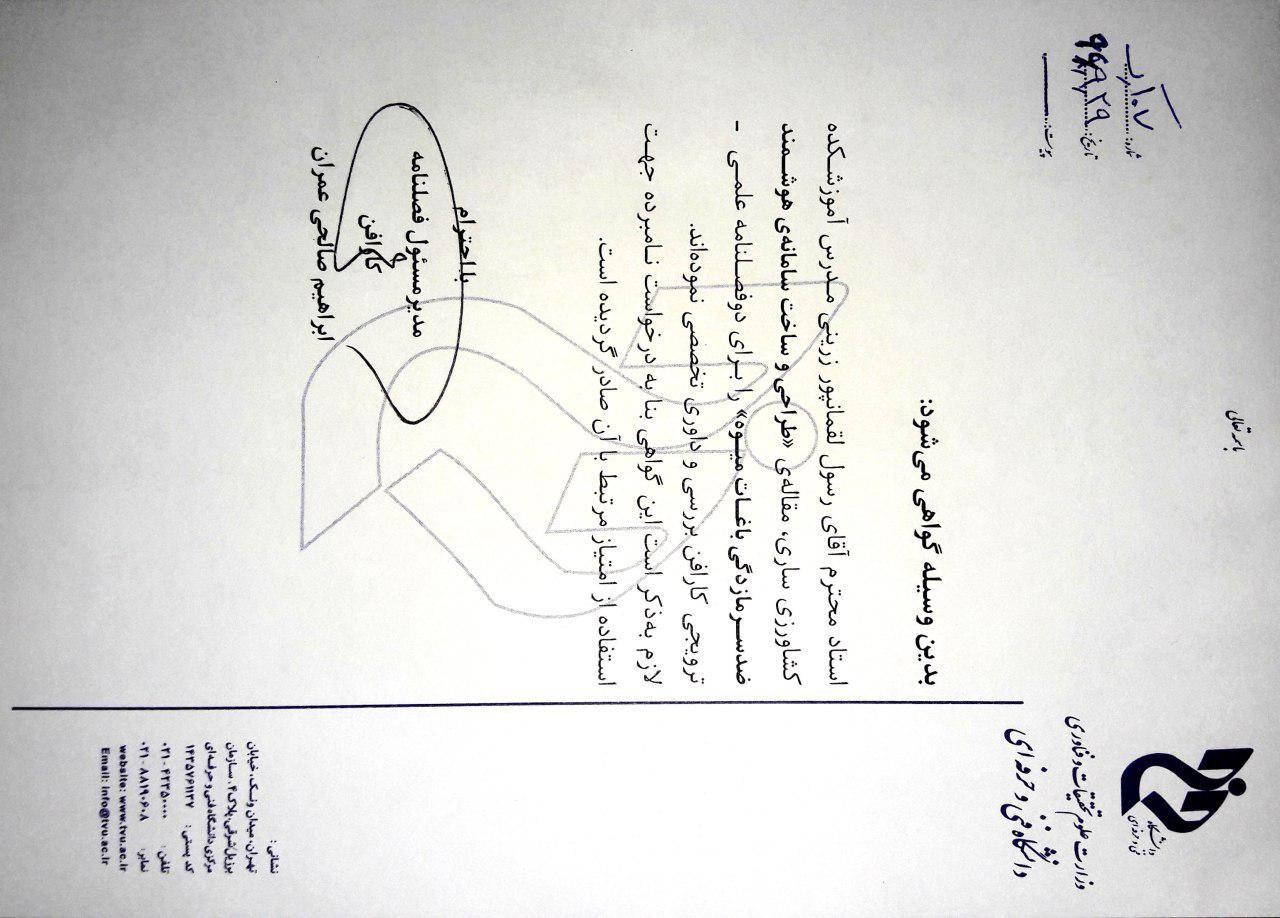 باسمه تعالی
وزارت علوم تحقیقات و فناوری
دانشگاه فنی و حرفه‌ای
دانشگاه
فنی و حرفه‌ای
شماره:
تاریخ:
پیوست:
بدین وسیله گواهی می‌شود:
استاد محترم آقای رسول لقمانپور زرینی مدرس آموزشکده
کشاورزی ساری، مقاله‌ی «طراحی و ساخت سامانه‌ی هوشمند
ضدسرمازدگی باغات میوه» را برای دوفصلنامه علمی -
ترویجی کارافن بررسی و داوری تخصصی نموده‌اند.
لازم به‌ذکر است این گواهی بنا به درخواست نامبرده جهت
استفاده از امتیاز مرتبط با آن صادر گردیده است.
با احترام
مدیر مسئول فصلنامه
کارافن
ابراهیم صالحی عمران
نشانی:
تهران، میدان ونک، خیابان
برزیل شرقی، پلاک ۴، سازمان
مرکزی دانشگاه فنی و حرفه‌ای
کد پستی: ۱۴۳۵۷۶۱۱۳۷
تلفن: ۰۲۱-۴۲۳۵۰۰۰۰
نمابر: ۰۲۱-۸۸۱۹۰۶۰۸
website: www.tvu.ac.ir
Email: info@tvu.ac.ir